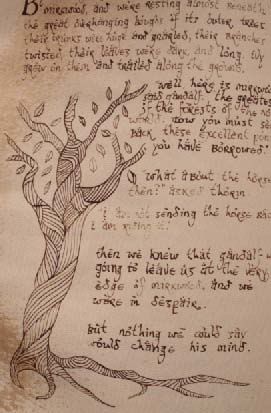 mirkwood, and were resting almost beneath
the great overhanging boughs of its outer trees
their trunks were huge and gnarled, their branches
twisted, their leaves were dark, and long. Ivy
grew on them, and trailed along the ground.
"well here is mirkwood"
said gandalf. "the greatest
of the forests of the
world. now you must send
back these excellent ponies
you have borrowed."
"what about the horse
then?" asked thorin.
"I am not sending the horse back
I am riding it."
then we knew that gandalf was
going to leave us at the very
edge of mirkwood, and we
were in despair.
but nothing we could say
would change his mind.